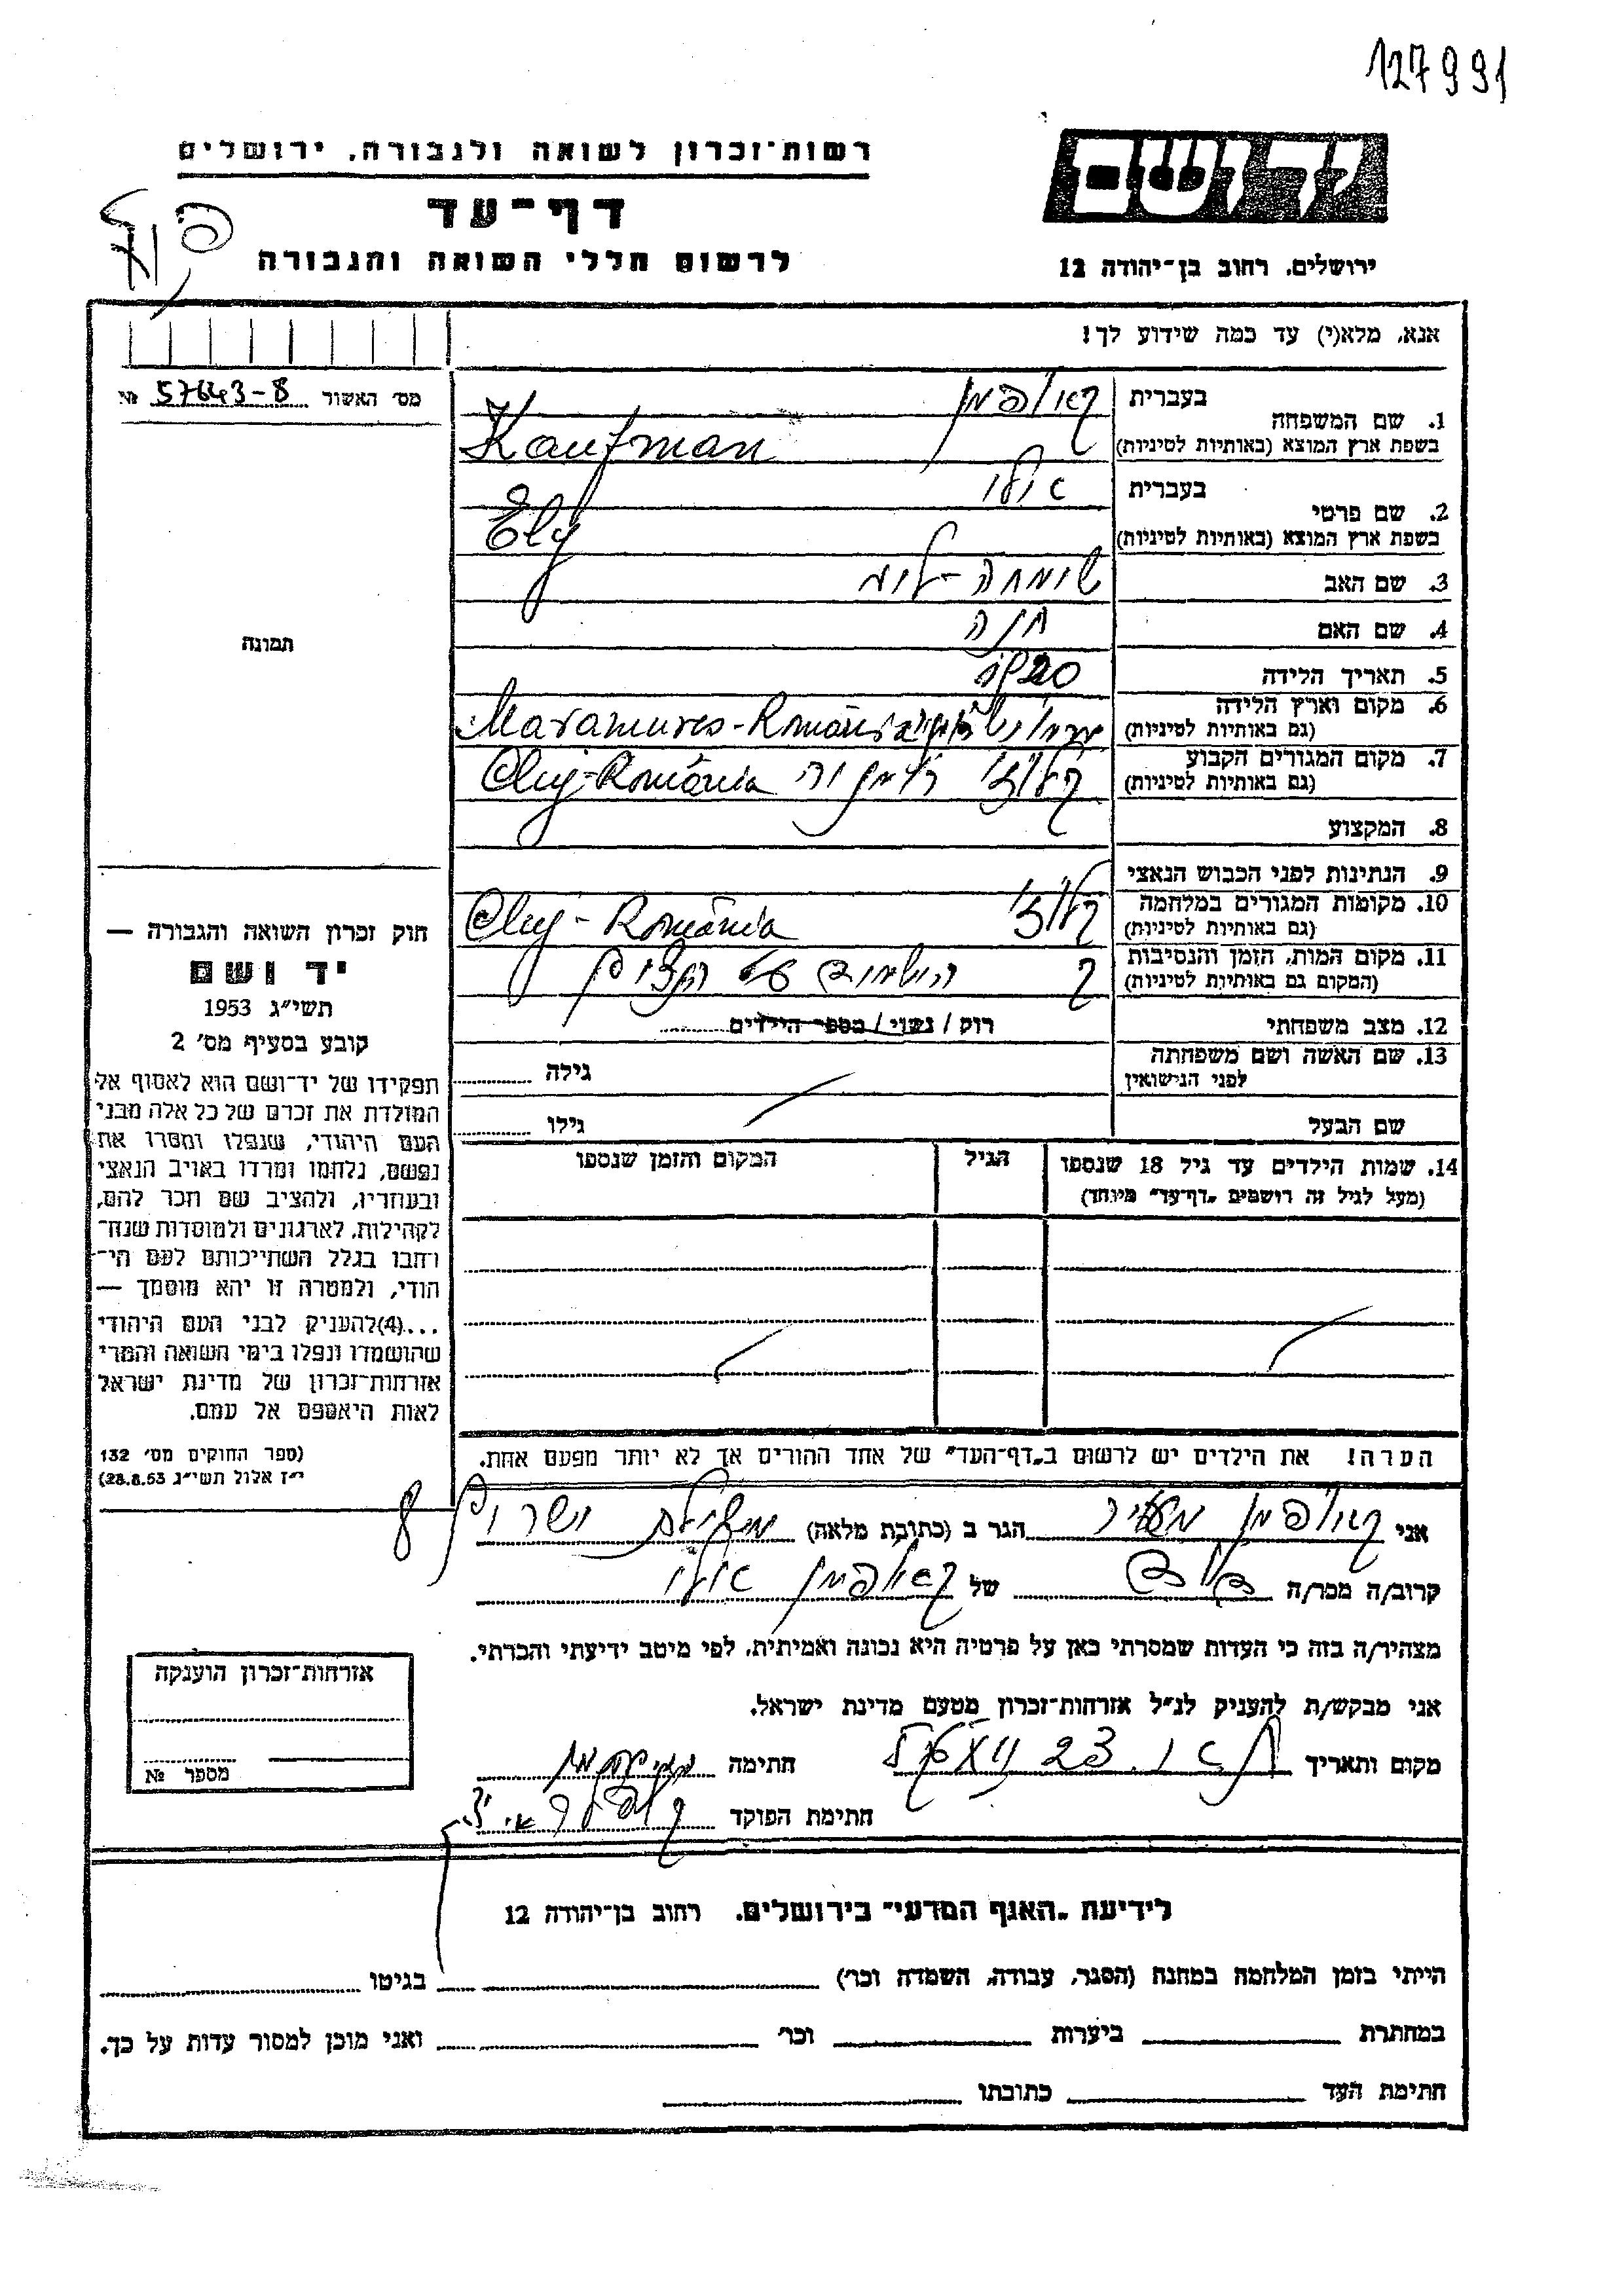 127991
רשות־זכרון לשואה ולגבורה, ירושלים
דף־עד
לרשום חללי השואה והגבורה
יד ושם
ירושלים, רחוב בן־יהודה 12
אנא, מלא(י) עד כמה שידוע לך!
מס׳ האשור 57643-8 №
תמונה
1. שם המשפחה
בעברית קאופמן
בשפת ארץ המוצא (באותיות לטיניות) Kaufman
2. שם פרטי
בעברית אלי
בשפת ארץ המוצא (באותיות לטיניות) Ely
3. שם האב שמחה-
4. שם האם חנה
5. תאריך הלידה 1920
6. מקום וארץ הלידה
(גם באותיות לטיניות) Maramures-România
7. מקום המגורים הקבוע
(גם באותיות לטיניות) קלוז׳ רומניה Cluj-România
8. המקצוע
9. הנתינות לפני הכבוש הנאצי
10. מקומות המגורים במלחמה
(גם באותיות לטיניות) קלוז׳ Cluj-România
11. מקום המות, הזמן והנסיבות
(המקום גם באותיות לטיניות)
12. מצב משפחתי רוק / נשוי / מספר הילדים
13. שם האשה ושם משפחתה
לפני הנישואין
גילה
שם הבעל
גילו
14. שמות הילדים עד גיל 18 שנספו
(מעל לגיל זה רושמים „דף־עד״ מיוחד)
הגיל
המקום והזמן שנספו
חוק זכרון השואה והגבורה —
יד ושם
תשי״ג 1953
קובע בסעיף מס׳ 2
תפקידו של יד־ושם הוא לאסוף אל
המולדת את זכרם של כל אלה מבני
העם היהודי, שנפלו ומסרו את
נפשם, נלחמו ומרדו באויב הנאצי
ובעוזריו, ולהציב שם וזכר להם,
לקהילות, לארגונים ולמוסדות שנח־
רבו בגלל השתייכותם לעם הי־
הודי, ולמטרה זו יהא מוסמך —
...(4)להעניק לבני העם היהודי
שהושמדו ונפלו בימי השואה והמרי
אזרחות־זכרון של מדינת ישראל
לאות היאספם אל עמם.
(ספר החוקים מס׳ 132
י״ז אלול תשי״ג 28.8.53)
הערה! את הילדים יש לרשום ב„דף־העד״ של אחד ההורים אך לא יותר מפעם אחת.
אני קאופמן מאיר הגר ב (כתובת מלאה) 8
קרוב/ה מכר/ה של קאופמן אלי
מצהיר/ה בזה כי העדות שמסרתי כאן על פרטיה היא נכונה ואמיתית, לפי מיטב ידיעתי והכרתי.
אני מבקש/ת להעניק לנ״ל אזרחות־זכרון מטעם מדינת ישראל.
מקום ותאריך 23 חתימה
חתימת הפוקד
אזרחות־זכרון הוענקה
מספר №
לידיעת „האגף המדעי״ בירושלים, רחוב בן־יהודה 12
הייתי בזמן המלחמה במחנה (הסגר, עבודה, השמדה וכו׳) בגיטו
במחתרת ביערות וכו׳ ואני מוכן למסור עדות על כך.
חתימת העד כתובתו